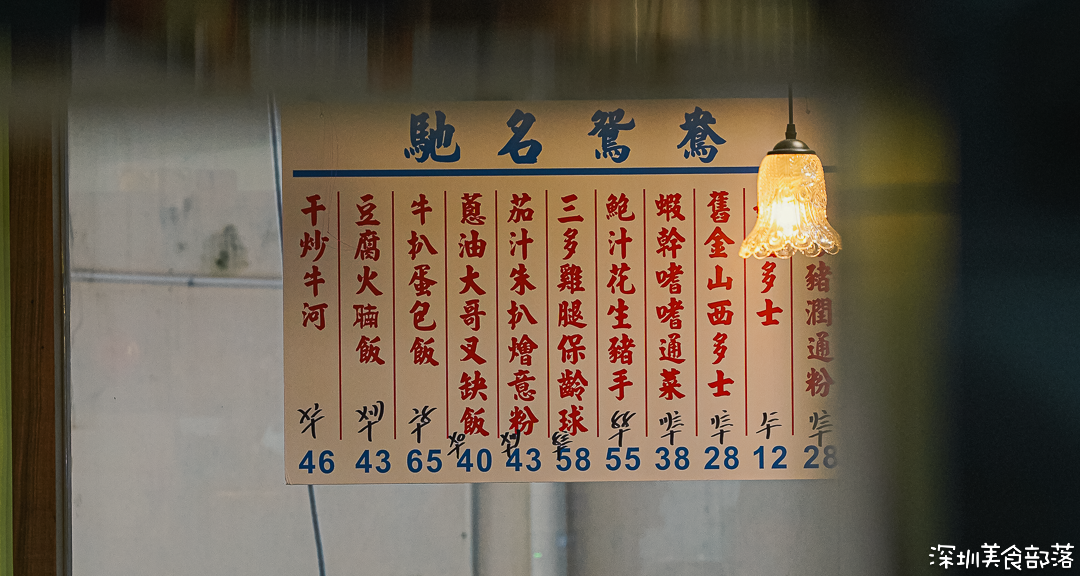 馳名鴛鴦
豬潤通粉
28
多士
12
舊金山西多士
28
蝦幹嗜嗜通菜
38
鮑汁花生豬手
55
三多雞腿保齡球
58
茄汁朱扒燴意粉
43
蔥油大哥叉缺飯
40
牛扒蛋包飯
65
豆腐火腩飯
43
干炒牛河
46
深圳美食部落